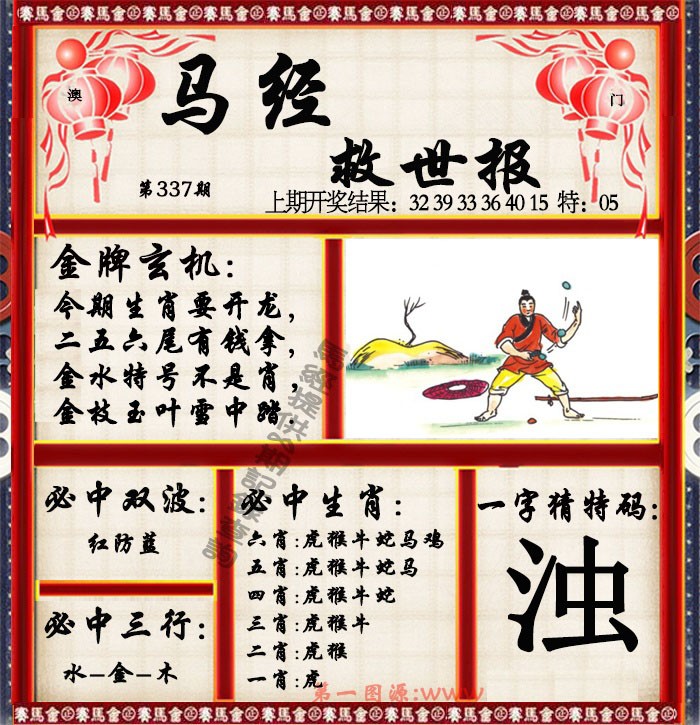 賽馬會 賽馬會 賽馬會 賽馬會 賽馬會 賽馬會 賽馬會 賽馬會 賽馬會
澳
门
马经
救世报
第337期
上期开奖结果：32 39 33 36 40 15 特：05
金牌玄机：
今期生肖要开龙，
二五六尾有钱拿，
金水特号不是肖，
金枝玉叶雪中踏.
必中双波：
红防蓝
必中三行：
水-金-木
必中生肖：
六肖:虎猴牛蛇马鸡
五肖:虎猴牛蛇马
四肖:虎猴牛蛇
三肖:虎猴牛
二肖:虎猴
一肖:虎
一字猜特码：
浊
第一图源:www